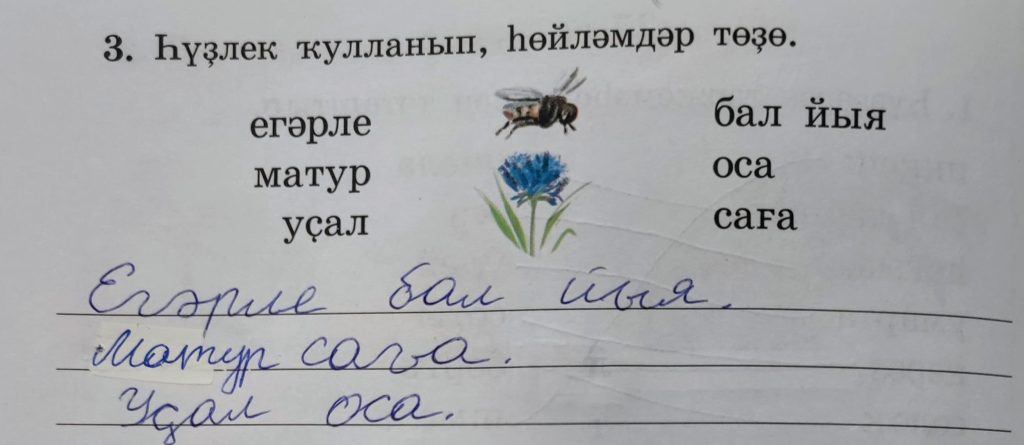 3. Һүҙлек ҡулланып, һөйләмдәр төҙө.
егәрле бал йыя
матур оса
уҫал саға
Егәрле бал йыя.
Матур саға.
Уҫал оса.